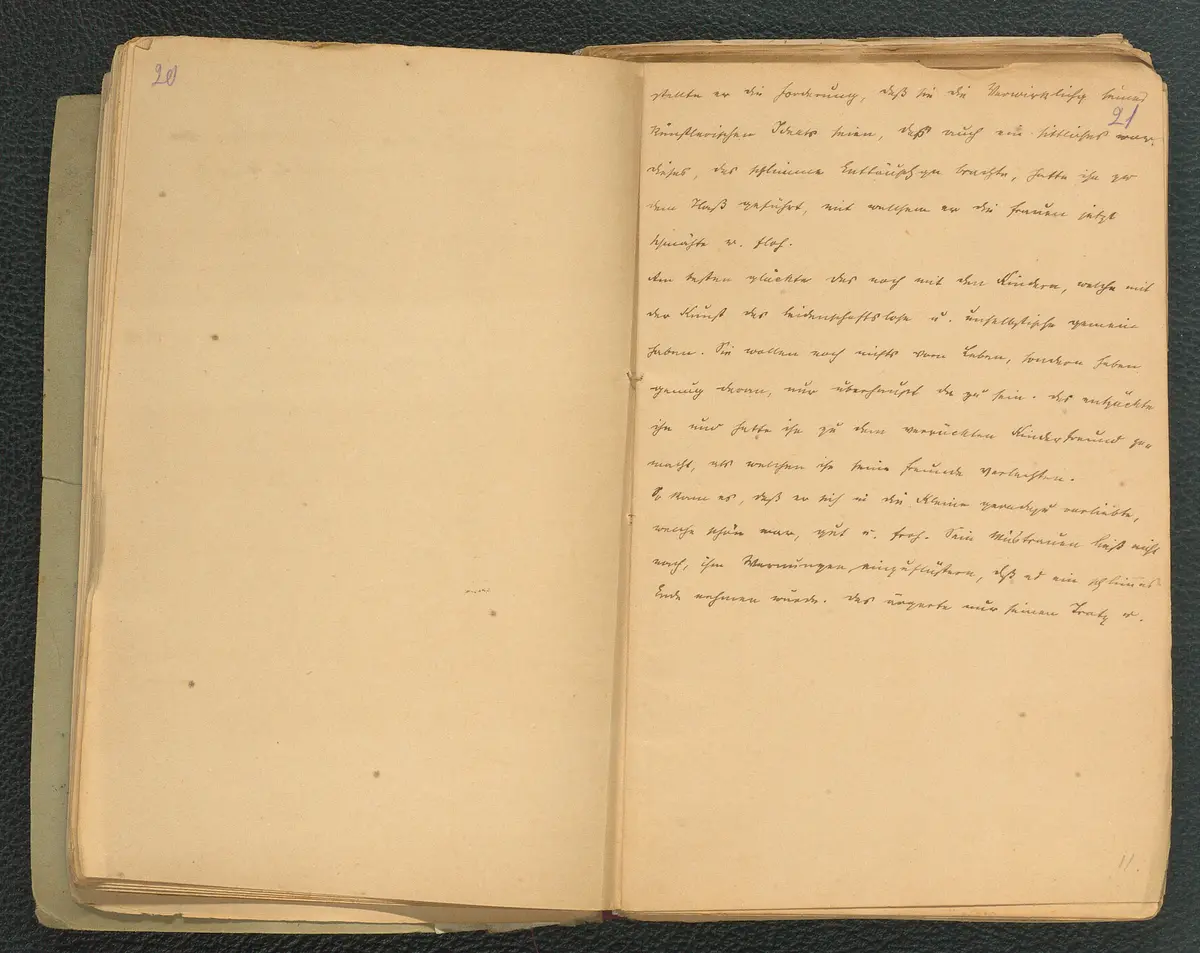 20
21
stellte er die Forderung, daß sie die Verwirklichg seines
künstlerischen Ideals seien, das auch ein sittliches war.
dieses, das schlimme Enttäuschgn brachte, hatte ihn zu
dem Haß geführt, mit welchem er die Frauen jetzt
schmähte u. floh.
Am besten glückte das noch mit den Kindern, welche mit
der Kunst das leidenschaftslose u. unselbstische gemein
haben. Sie wollen noch nichts vom Leben, sondern haben
genug daran, nur überhaupt da zu sein. das entzückte
ihn und hatte ihn zu dem verrückten Kinderfreund ge-
macht, als welchen ihn seine Freunde verlachten.
So kam es, daß er sich in die Kleine geradezu verliebte,
welche schön war, gut u. froh. Sein Misstrauen ließ nicht
nach, ihm Warnungen einzuflüstern, daß es ein schlimmes
Ende nehmen würde. das ärgerte nur seinen Trotz u.
11.